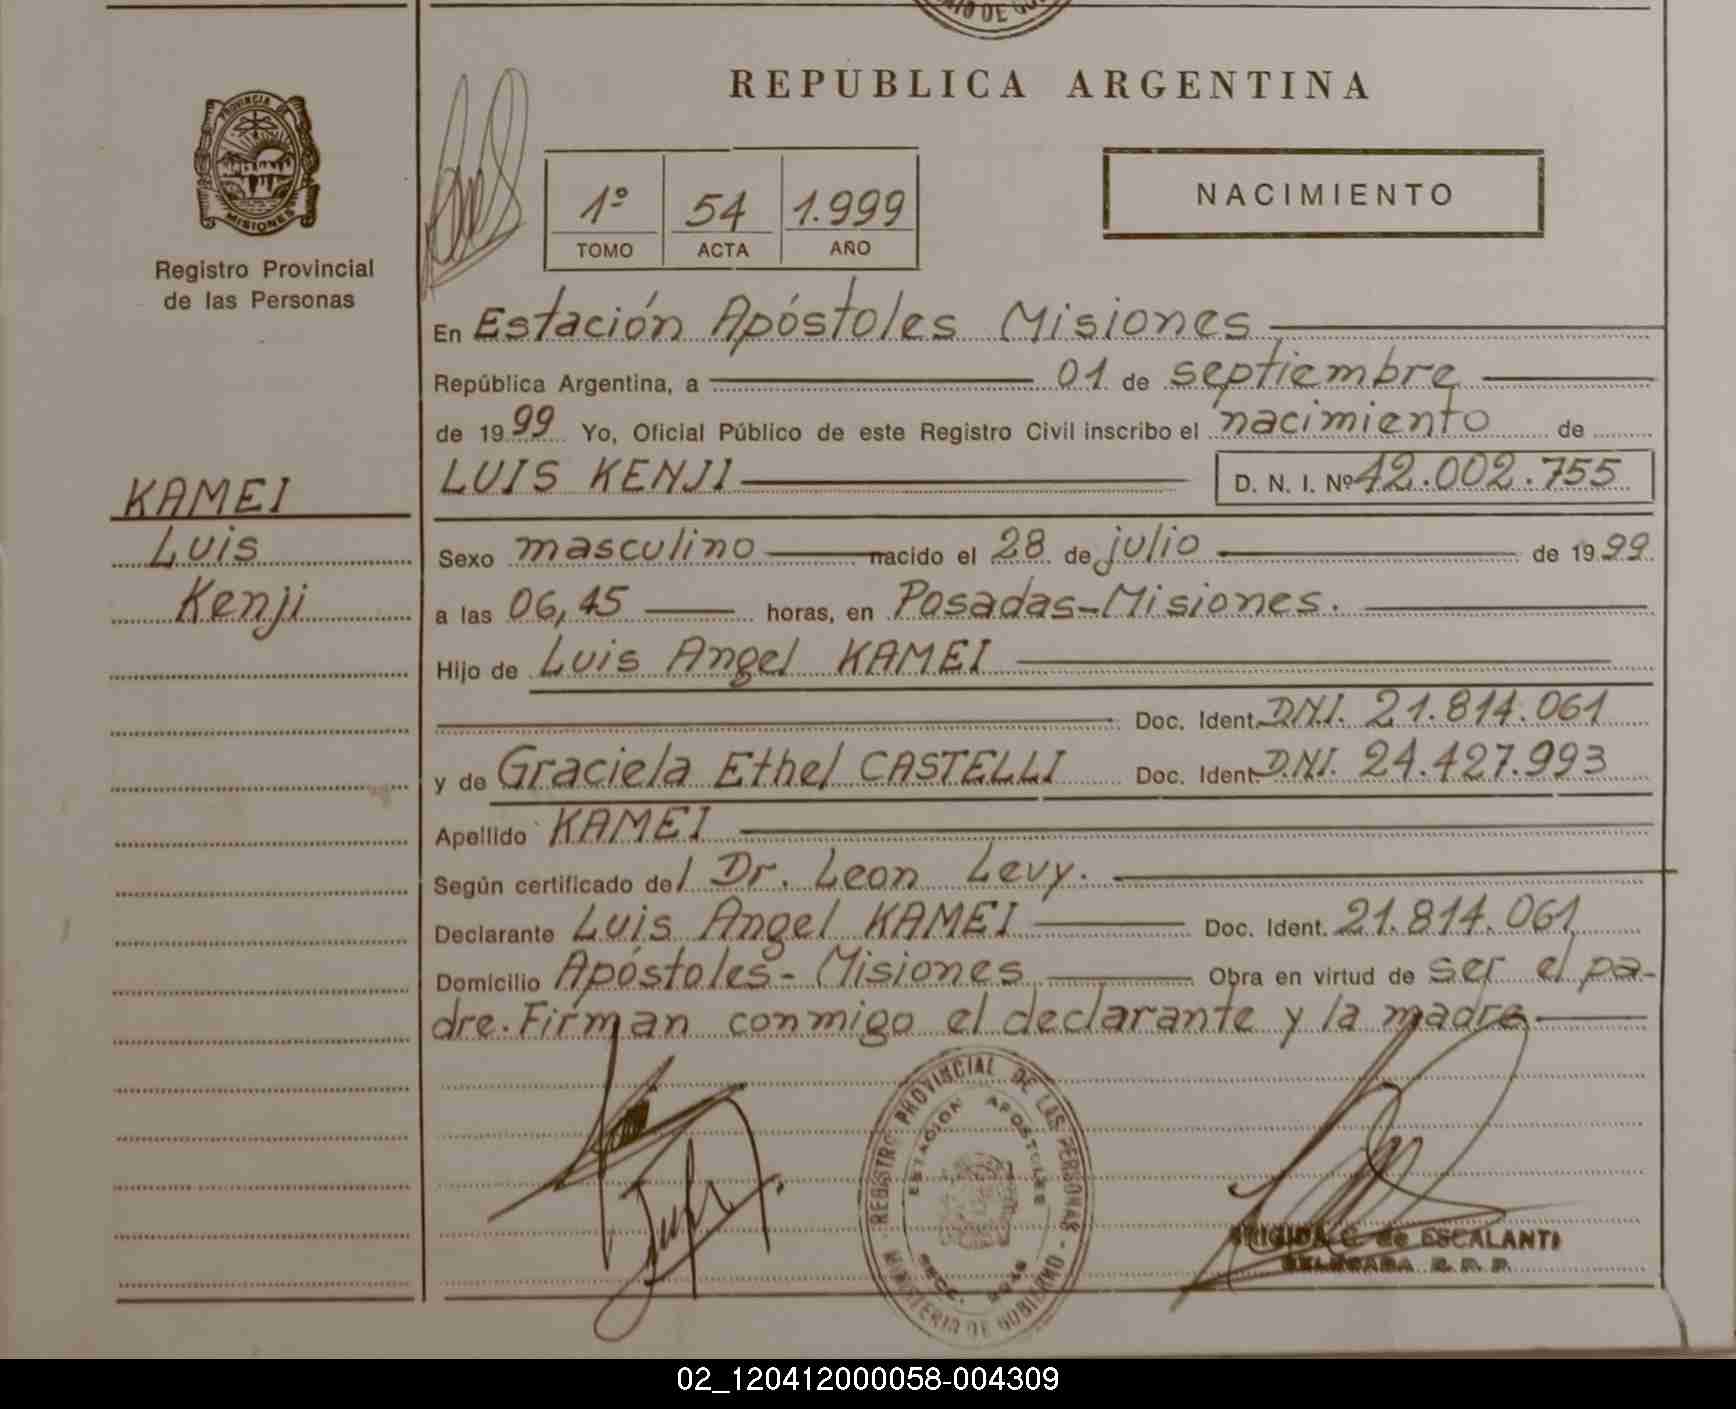 RIO DE GO
REPUBLICA ARGENTINA
PROVINCIA DE
MISIONES
Registro Provincial
de las Personas
1º 54 1.999
TOMO ACTA AÑO
NACIMIENTO
En Estación Apóstoles Misiones
República Argentina, a 01 de septiembre
de 1999 Yo, Oficial Público de este Registro Civil inscribo el nacimiento de
LUIS KENJI D. N. I. Nº 42.002.755
KAMEI
Luis
Kenji
Sexo masculino nacido el 28 de julio de 1999
a las 06,45 horas, en Posadas-Misiones.
Hijo de Luis Angel KAMEI
Doc. Ident. DNI. 21.814.061
y de Graciela Ethel CASTELLI Doc. Ident DNI. 24.427.993
Apellido KAMEI
Según certificado del Dr. Leon Levy.
Declarante Luis Angel KAMEI Doc. Ident. 21.814.061
Domicilio Apóstoles-Misiones Obra en virtud de ser el pa-
dre. Firman conmigo el declarante y la madre
REGISTRO PROVINCIAL DE LAS PERSONAS -
MINISTERIO DE GOBIERNO
ESTACION APOSTOLES
BRIGIDA G. de ESCALANTE
DELEGADA R. P. P.
02_120412000058-004309